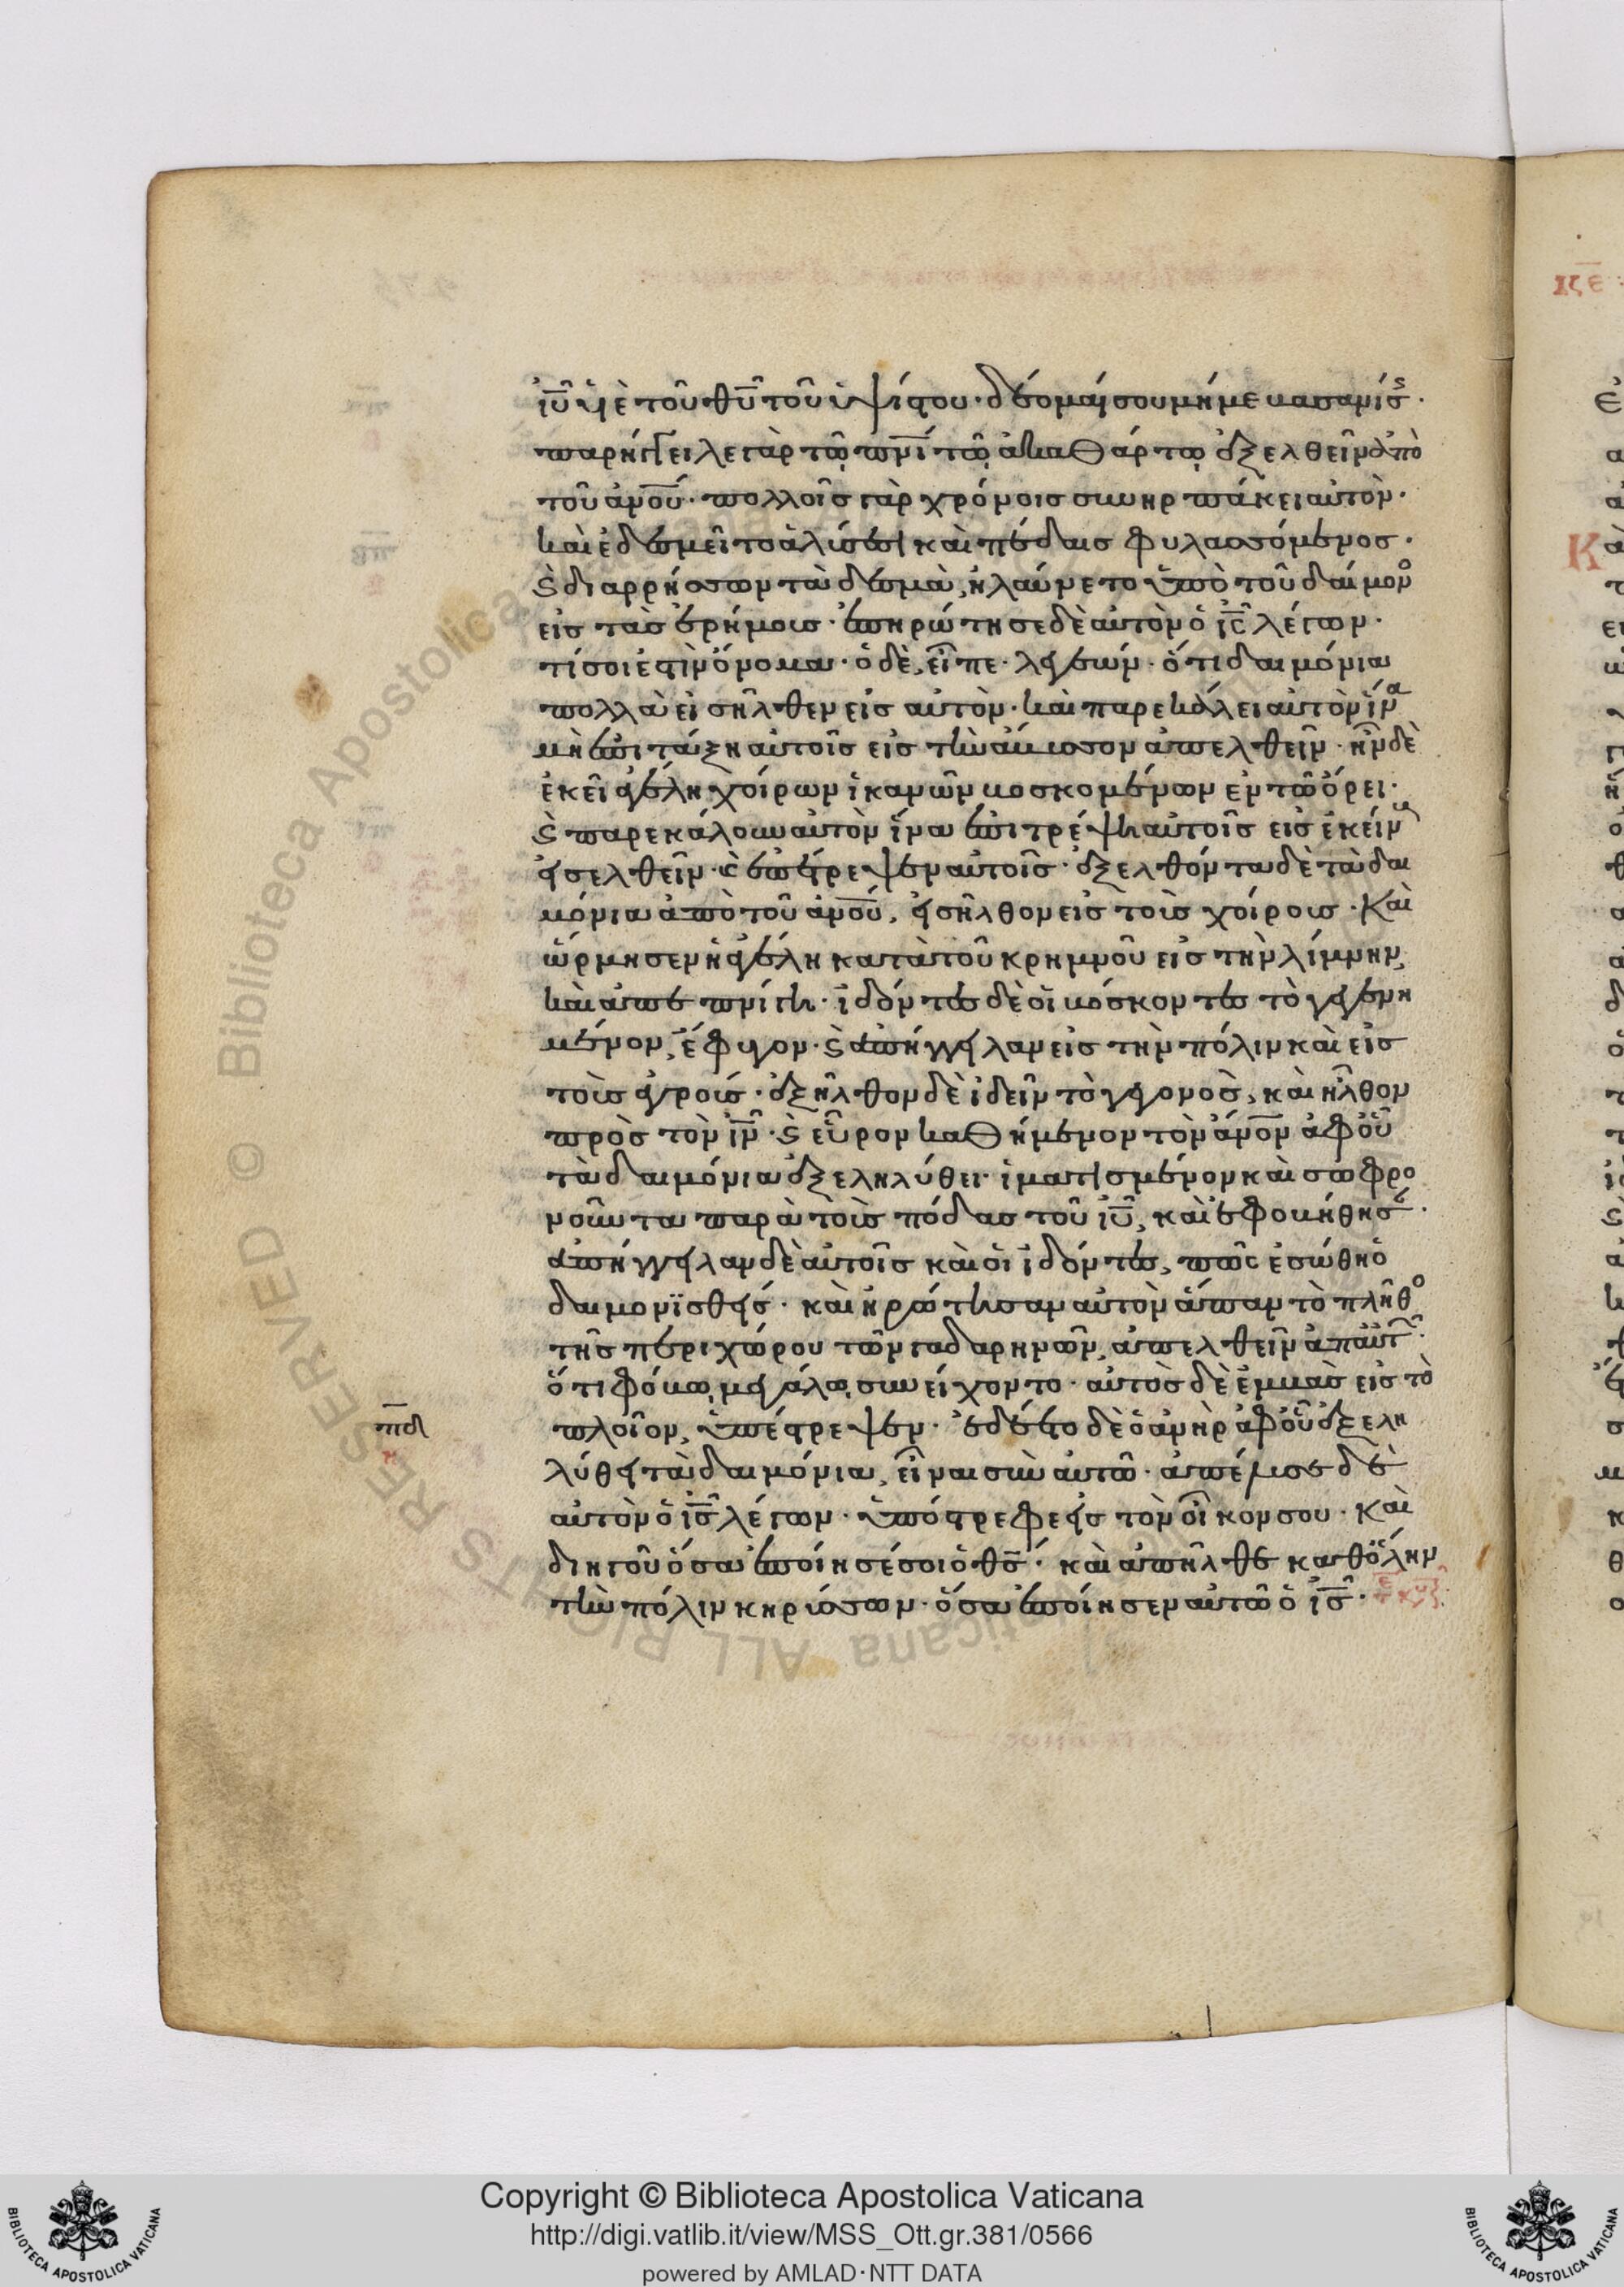 ἰῦ υἱὲ τοῦ θῦ τοῦ ὑψίστου· δέομαί σου μή με βασανίσης·
παρήγγειλε γὰρ τῶ πνὶ τῶ ἀκαθάρτω ἐξελθεῖν ἀπὸ
τοῦ ἀνοῦ· πολλοῖς γὰρ χρόνοις συνηρπάκει αὐτὸν·
καὶ ἐδεσμεῖτο ἁλύσεσι καὶ πέδαις φυλασσόμενος·
καὶ διαρρήσσων τὰ δεσμὰ, ἠλαύνετο ὑπὸ τοῦ δαίμονο
εἰς τὰς ἐρήμους· ἐπηρώτησε δὲ αὐτὸν ὁ ἰς λέγων·
τί σοι ἐστὶν ὄνομα· ὁ δὲ, εἶπε· λεγεών· ὅτι δαιμόνια
πολλὰ εἰσῆλθεν εἰς αὐτὸν· καὶ παρεκάλει αὐτὸν ἵνα
μὴ ἐπιτάξη αὐτοῖς εἰς τὴν ἄβυσσον ἀπελθεῖν· ἦν δὲ
ἐκεῖ ἀγέλη χοίρων ἱκανῶν βοσκομένων ἐν τῶ ὄρει·
καὶ παρεκάλουν αὐτὸν ἵνα ἐπιτρέψη αὐτοῖς εἰς ἐκείνους
εἰσελθεῖν· καὶ ἐπέτρεψεν αὐτοῖς· ἐξελθόντα δὲ τὰ δαι
μόνια ἀπὸ τοῦ ἀνοῦ, εἰσῆλθον εἰς τοὺς χοίρους· Καὶ
ὥρμησεν ἡ ἀγέλη κατὰ τοῦ κρημνοῦ εἰς τὴν λίμνην,
καὶ ἀπεπνίγη· ἰδόντες δὲ οἱ βόσκοντες τὸ γεγενη
μένον, ἔφυγον· καὶ ἀπήγγειλαν εἰς τὴν πόλιν καὶ εἰς
τοὺς ἀγρούς· ἐξῆλθον δὲ ἰδεῖν τὸ γεγονὸς, καὶ ἦλθον
πρὸς τὸν ἰν· καὶ εὗρον καθήμενον τὸν ἄνον ἀφ οὗ
τὰ δαιμόνια ἐξεληλύθει· ἱματισμένον καὶ σωφρο
νοῦντα παρὰ τοὺς πόδας τοῦ ἰῦ, καὶ ἐφοβήθησ·
ἀπήγγειλαν δὲ αὐτοῖς καὶ οἱ ἰδόντες, πῶς ἐσώθη ὁ
δαιμονϊσθείς· καὶ ἠρώτησαν αὐτὸν ἅπαν τὸ πλῆθο
τῆς περιχώρου τῶν γαδαρηνῶν, ἀπελθεῖν ἀπ αὐτ·
ὅτι φόβω μεγάλω συνείχοντο· αὐτὸς δὲ ἐμβὰς εἰς τὸ
πλοῖον, ὑπέστρεψεν· ἐδέετο δὲ ὁ ἀνὴρ ἀφ οὗ ἐξελη
λύθει τὰ δαιμόνια, εἶναι σὺν αὐτῶ· ἀπέλυσε δὲ
αὐτὸν ὁ ἰς λέγων· ὑπόστρεφε εἰς τὸν οἶκόν σου· Καὶ
διηγοῦ ὅσα ἐποίησέ σοι ὁ θς· καὶ ἀπῆλθε καθ ὅλην
τὴν πόλιν κηρύσσων· ὅσα ἐποίησεν αὐτῶ ὁ ἰς·
πδ
Biblioteca Apostolica Vaticana ALL RIGHTS RESERVED ©
Copyright © Biblioteca Apostolica Vaticana
http://digi.vatlib.it/view/MSS_Ott.gr.381/0566
powered by AMLAD·NTT DATA
BIBLIOTECA APOSTOLICA VATICANA
BIBLIOTECA APOSTOLICA VATICANA